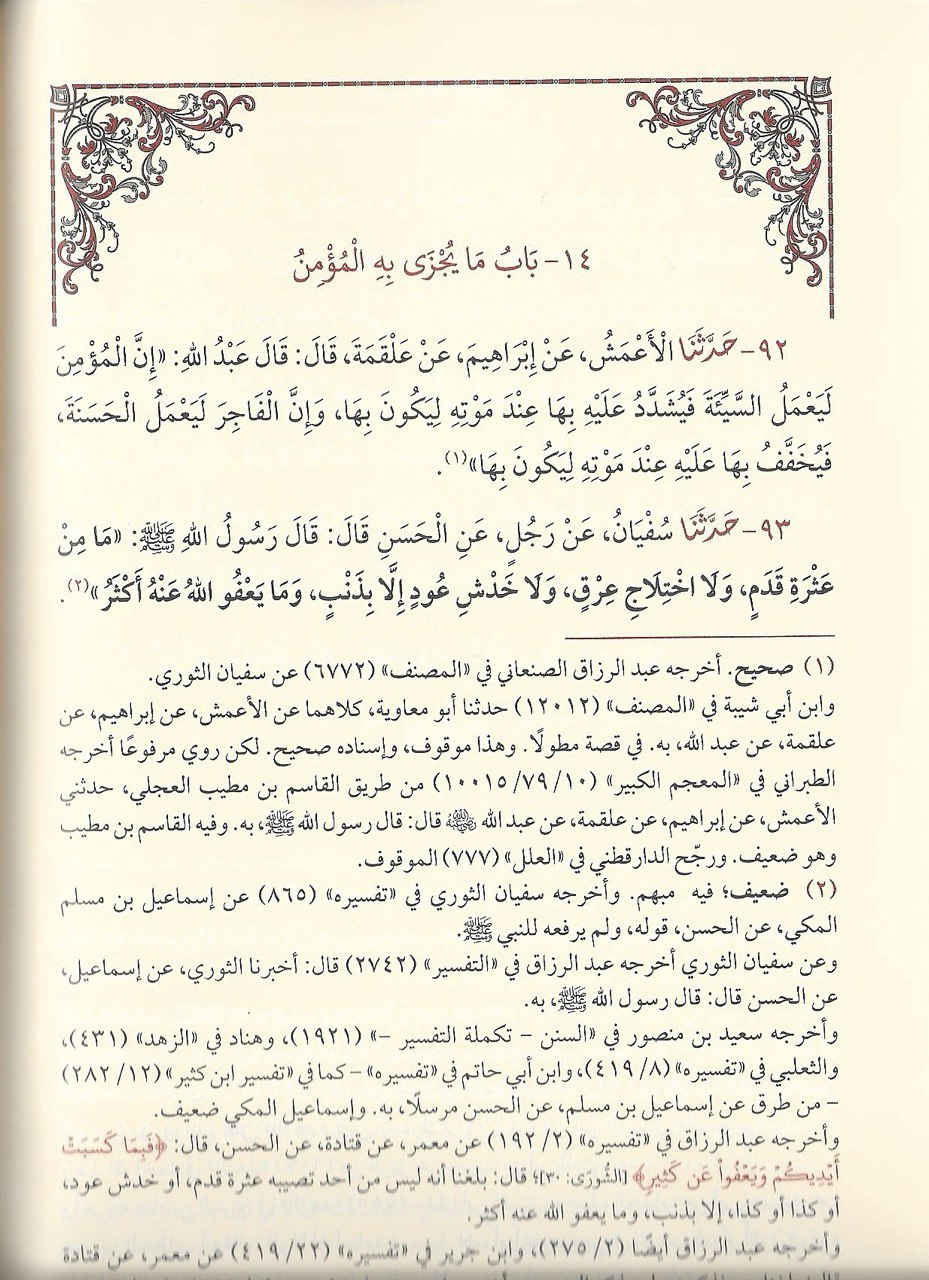 ١٤- بَابُ مَا يُجْزَى بِهِ الْمُؤْمِنُ
٩٢- حَدَّثَنَا الْأَعْمَشُ، عَنْ إِبْرَاهِيمَ، عَنْ عَلْقَمَةَ، قَالَ: قَالَ عَبْدُ اللهِ: «إِنَّ الْمُؤْمِنَ
لَيَعْمَلُ السَّيِّئَةَ فَيُشَدَّدُ عَلَيْهِ بِهَا عِنْدَ مَوْتِهِ لِيَكُونَ بِهَا، وَإِنَّ الْفَاجِرَ لَيَعْمَلُ الْحَسَنَةَ،
فَيُخَفَّفُ بِهَا عَلَيْهِ عِنْدَ مَوْتِهِ لِيَكُونَ بِهَا»(١).
٩٣- حَدَّثَنَا سُفْيَانُ، عَنْ رَجُلٍ، عَنِ الْحَسَنِ قَالَ: قَالَ رَسُولُ اللهِ ﷺ: «مَا مِنْ
عَثْرَةِ قَدَمٍ، وَلَا اخْتِلَاجِ عِرْقٍ، وَلَا خَدْشِ عُودٍ إِلَّا بِذَنْبٍ، وَمَا يَعْفُو اللهُ عَنْهُ أَكْثَرُ»(٢).
(١) صحيح. أخرجه عبد الرزاق الصنعاني في «المصنف» (٦٧٧٢) عن سفيان الثوري.
وابن أبي شيبة في «المصنف» (١٢٠١٢) حدثنا أبو معاوية، كلاهما عن الأعمش، عن إبراهيم، عن
علقمة، عن عبد الله، به. في قصة مطولًا. وهذا موقوف، وإسناده صحيح. لكن روي مرفوعًا أخرجه
الطبراني في «المعجم الكبير» (١٠/ ٧٩/ ١٠٠١٥) من طريق القاسم بن مطيب العجلي، حدثني
الأعمش، عن إبراهيم، عن علقمة، عن عبد الله رضي الله عنه قال: قال رسول الله ﷺ، به. وفيه القاسم بن مطيب
وهو ضعيف. ورجّح الدارقطني في «العلل» (٧٧٧) الموقوف.
(٢) ضعيف؛ فيه مبهم. وأخرجه سفيان الثوري في «تفسيره» (٨٦٥) عن إسماعيل بن مسلم
المكي، عن الحسن، قوله، ولم يرفعه للنبي ﷺ.
وعن سفيان الثوري أخرجه عبد الرزاق في «التفسير» (٢٧٤٢) قال: أخبرنا الثوري، عن إسماعيل،
عن الحسن قال: قال رسول الله ﷺ، به.
وأخرجه سعيد بن منصور في «السنن - تكملة التفسير -» (١٩٢١)، وهناد في «الزهد» (٤٣١)،
والثعلبي في «تفسيره» (٨/ ٤١٩)، وابن أبي حاتم في «تفسيره» - كما في «تفسير ابن كثير» (١٢/ ٢٨٢)
- من طرق عن إسماعيل بن مسلم، عن الحسن مرسلًا، به. وإسماعيل المكي ضعيف.
وأخرجه عبد الرزاق في «تفسيره» (٢/ ١٩٢) عن معمر، عن قتادة، عن الحسن، قال: ﴿فَبِمَا كَسَبَتْ
أَيْدِيكُمْ وَيَعْفُواْ عَن كَثِيرٍ﴾ [الشُّورَى: ٣٠]؛ قال: بلغنا أنه ليس من أحد تصيبه عثرة قدم، أو خدش عود،
أو كذا أو كذا، إلا بذنب، وما يعفو الله عنه أكثر.
وأخرجه عبد الرزاق أيضًا (٢/ ٢٧٥)، وابن جرير في «تفسيره» (٢٢/ ٤١٩) عن معمر، عن قتادة